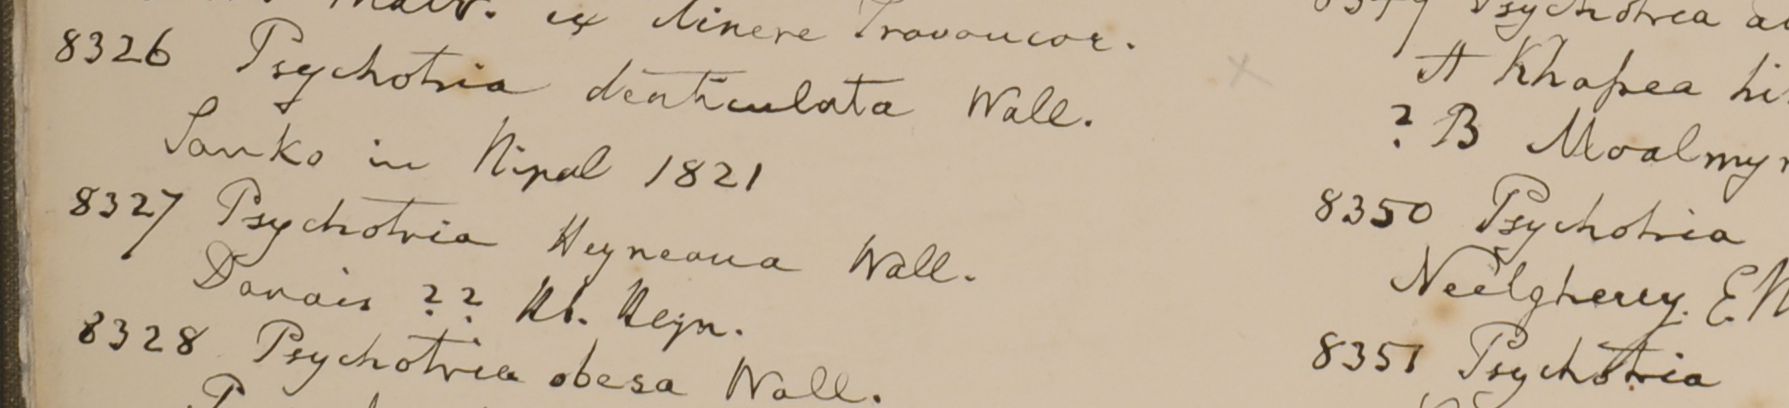 ex itinere Travancor.
8326 Psychotria denticulata Wall.
Sanko in Nipal 1821
8327 Psychotria Heyneana Wall.
Danais ?? Hb. Heyn.
8328 Psychotria obesa Wall.
8349 Psychotria
A Khapea
? B Moalmyn
8350 Psychotria
Neelgherry. E
8351 Psychotria